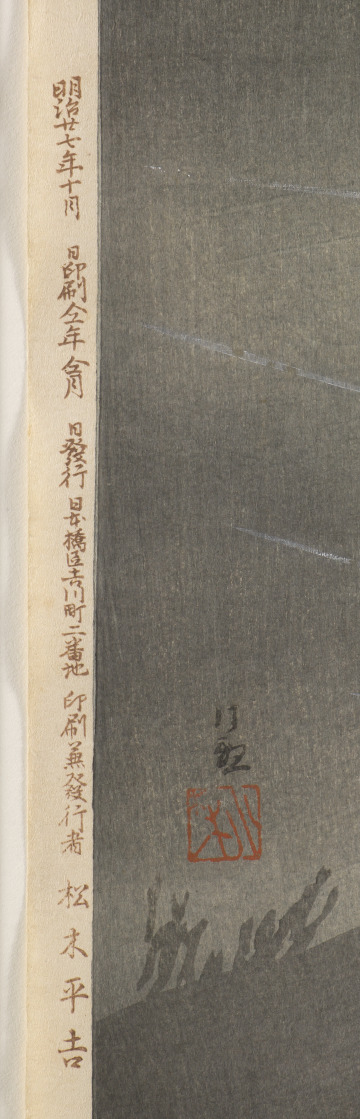 明治廿七年十月　日印刷仝年仝月　日發行日本橋區吉川町二番地　印刷兼發行者　松木平吉
清親